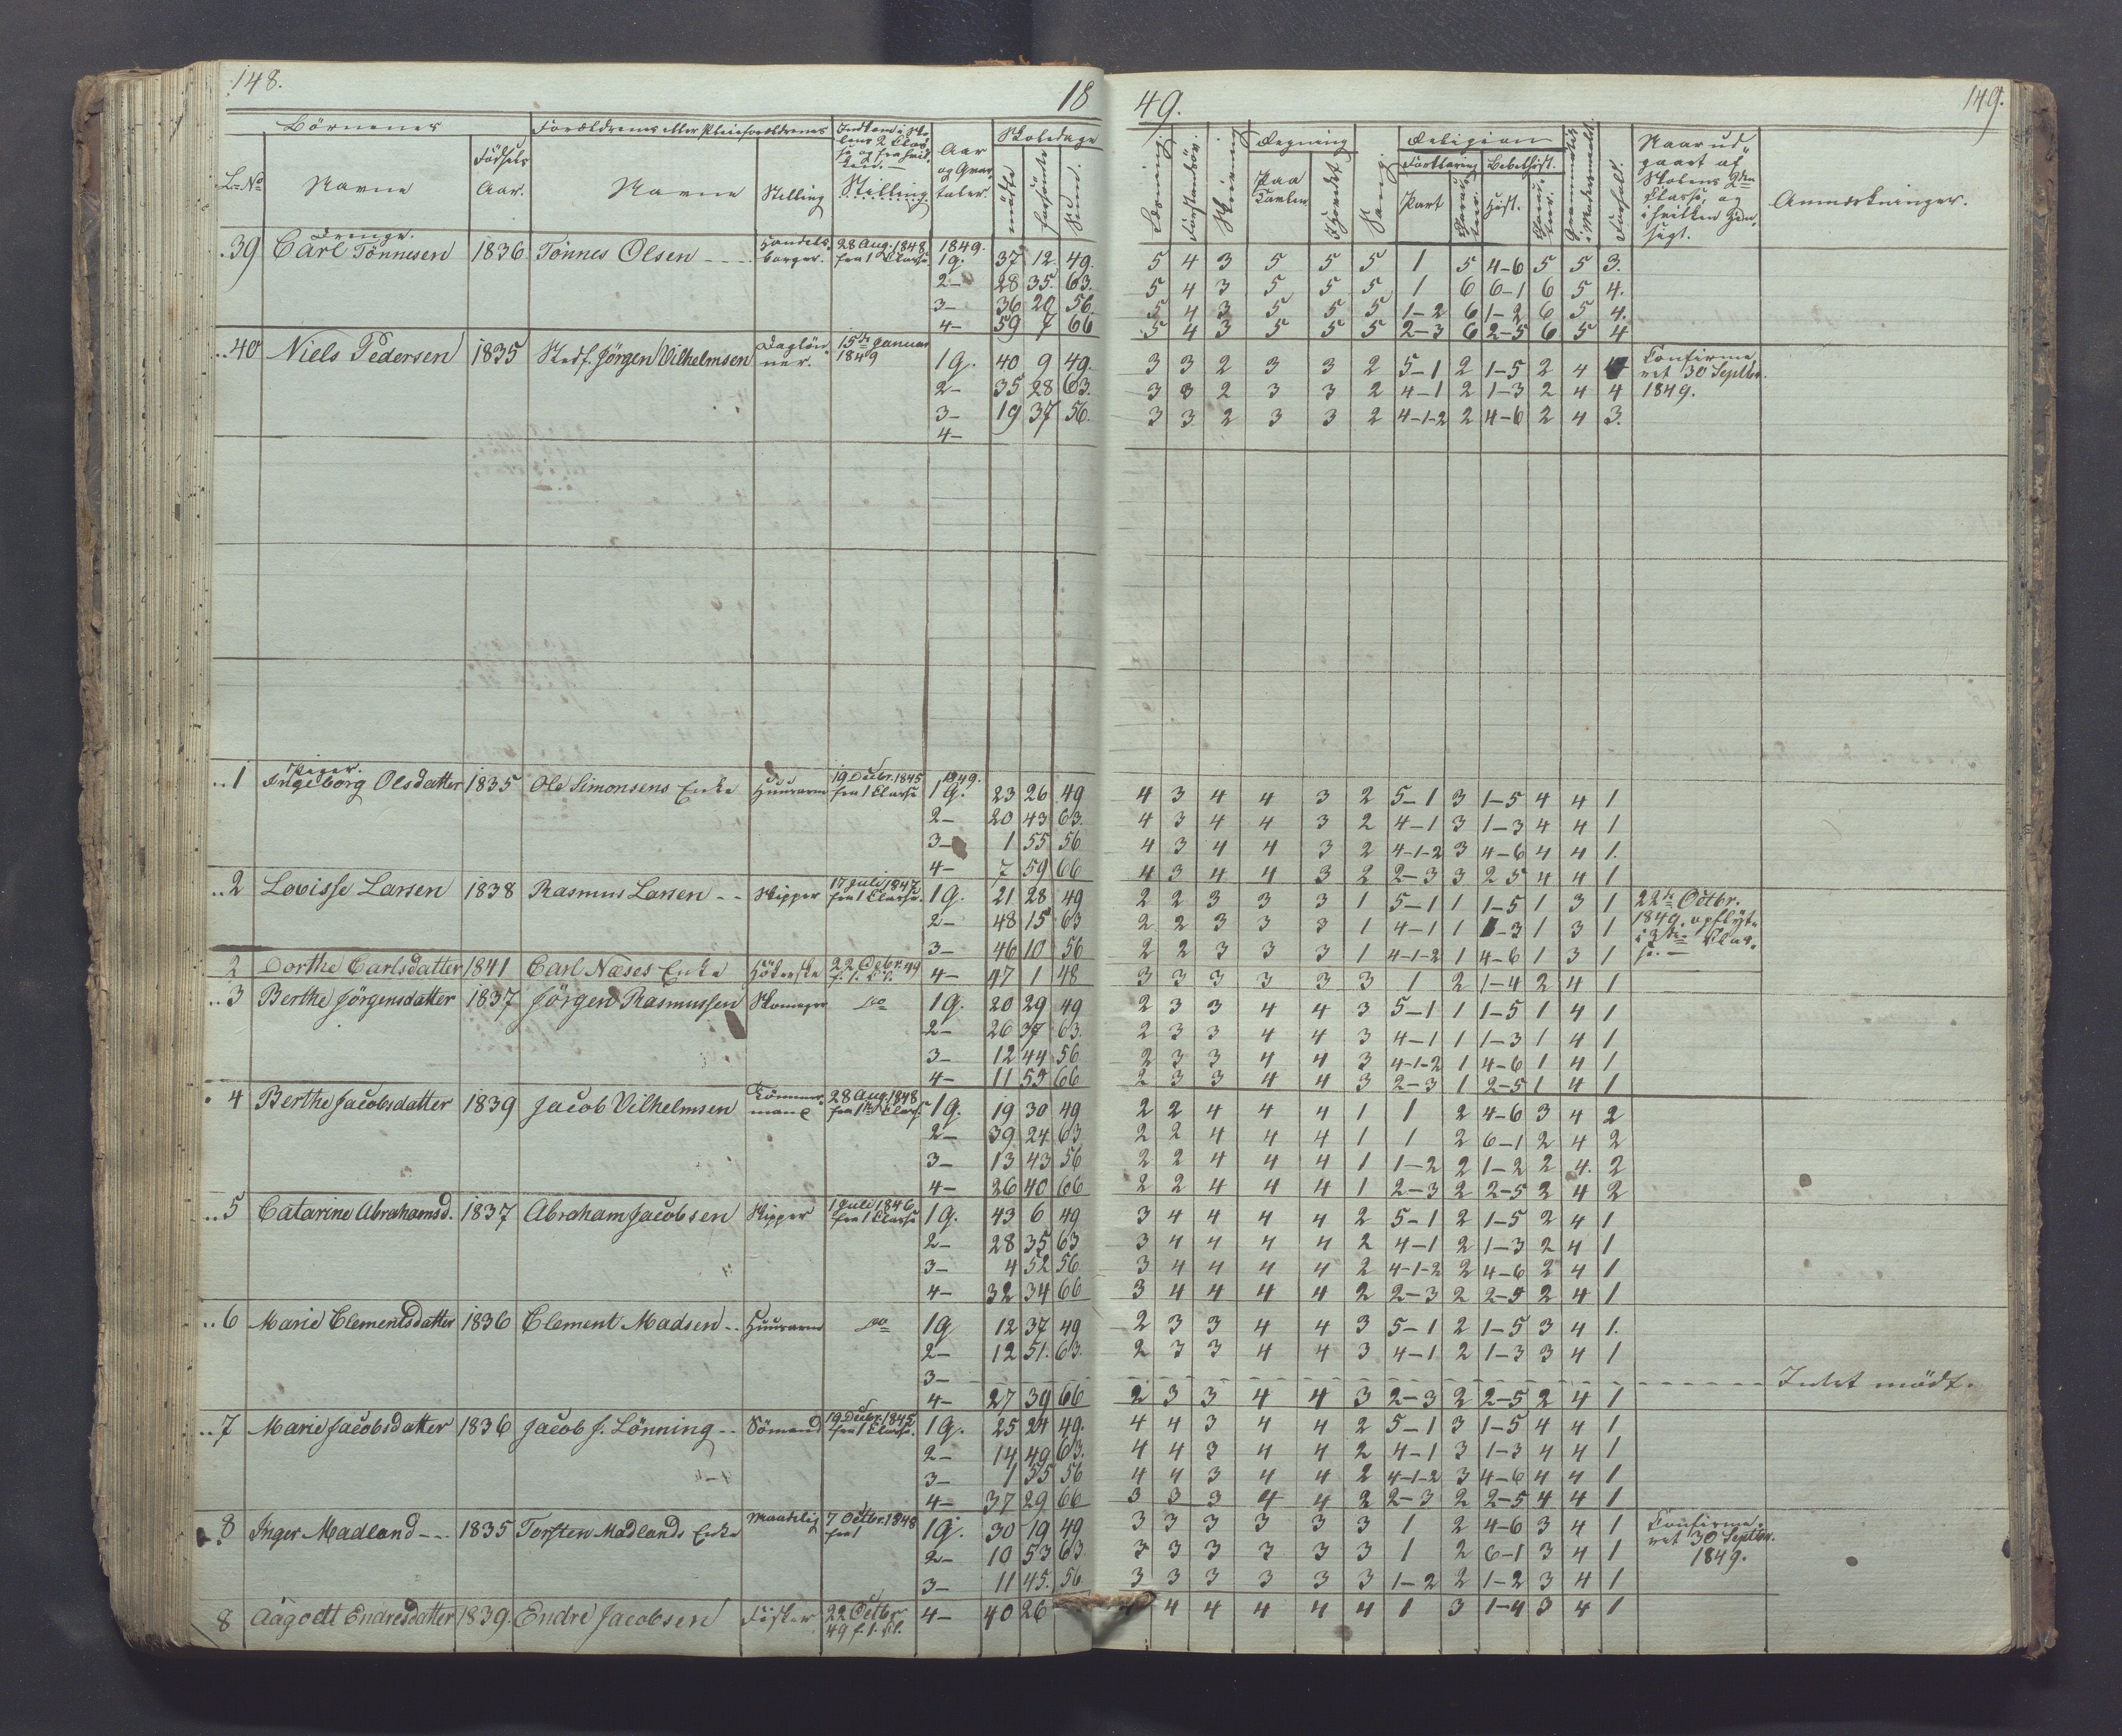 148.
18
49.
149.
Börnenes
Forældrenes eller Pleieforældrenes
Skoledage
L. No
Navne
Fødsels Aar.
Navne
Stilling
Aar og Qvartaler.
mødte
forsömte
Sum.
Læsning
Forstandöv.
Skrivning
Regning
Paa Tavlen
I Hovedet
Sang.
Religion
Forklaring
Bibelhist.
Part
Hist.
Forhold.
Naar udgaaet af Skolens 2den Classe, og i hvilken Henseende.
Anmærkninger.
Drenge.
39 Carl Tönnesen 1836 Tönnes Olsen Handelsborger. 28 Aug. 1848. fra 1 Classe. 1849.
1q. 37 12 49. 5 4 3 5 5 5 1 5 4-6 5 5 3.
2- 28 35 63. 5 4 3 5 5 5 1 6 6-1 6 5 4.
3- 36 20 56. 5 4 3 5 5 5 1-2 6 1-2 6 5 4.
4- 59 7 66 5 4 3 5 5 5 2-3 6 2-5 6 5 4
40 Niels Pedersen 1835 Stedf. Jörgen Vilhelmsen Daglönner. 15de Januar 1849
1q. 40 9 49. 3 3 2 3 3 2 5-1 2 1-5 2 4 Confirmeret 30 Septbr. 1849.
2- 35 28 63. 3 3 2 3 3 2 4-1 2 1-3 2 4 4
3- 19 37 56. 3 3 2 3 3 2 4-1-2 2 4-6 2 4 3.
4-
Piger.
1 Ingeborg Olsdatter 1835 Ole Simonsens Enke Huusarm 19 Decbr. 1845 fra 1 Classe 1849.
1q. 23 26 49 4 3 4 4 3 2 5-1 3 1-5 4 4 1
2- 20 43 63. 4 3 4 4 3 2 4-1 3 1-3 4 4 1
3- 1 55 56 4 3 4 4 3 2 4-1-2 3 4-6 4 4 1.
4- 7 59 66 4 3 4 4 3 2 2-3 3 2 5 4 4 1
2 Lovisse Larsen 1838 Rasmus Larsen Skipper 17 Juli 1847 fra 1 Classe.
1q. 21 28 49 2 2 3 3 3 1 5-1 1 1-5 1 3 1 22de Octbr. 1849. opflyt. i 3die Classe.
2- 48 15 63 2 2 3 3 3 1 4-1 1 1-3 1 3 1
3- 46 10 56 2 2 3 3 3 1 4-1-2 1 4-6 1 3 1
2 Dorthe Carlsdatter 1841 Carl Næses Enke Hökerske 22 Octbr. 49 f. 1. Cl. 4- 47 1 48 3 3 3 3 3 3 1 2 1-4 2 4 1
3 Berthe Jörgensdatter 1837 Jörgen Rasmussen Skomager do
1q. 20 29 49 2 3 3 4 4 3 5-1 1 1-5 1 4 1
2- 26 37 63. 2 3 3 4 4 3 4-1 1 1-3 1 4 1
3- 12 44 56 2 3 3 4 4 3 4-1-2 1 4-6 1 4 1
4- 11 55 66 2 3 3 4 4 3 2-3 1 2-5 1 4 1
4 Berthe Jacobsdatter 1839 Jacob Vilhelmsen Tömmermand 28 Aug. 1848 fra 1ste Classe
1q. 19 30 49 2 2 4 4 4 1 1 2 4-6 3 4 2
2- 39 24 63 2 2 4 4 4 1 1 2 6-1 2 4 2
3- 13 43 56 2 2 4 4 4 1 1-2 2 1-2 2 4. 2
4- 26 40 66 2 2 4 4 4 1 2-3 2 2-5 2 4 2
5 Catarine Abrahamsd. 1837 Abraham Jacobsen Skipper 1 Juli 1846 fra 1 Classe
1q. 43 6 49 3 4 4 4 4 2 5-1 2 1-5 2 4 1
2- 28 35 63 3 4 4 4 4 2 4-1 2 1-3 2 4 1
3- 4 52 56. 3 4 4 4 4 2 4-1-2 2 4-6 2 4 1
4- 32 34 66 3 4 4 4 4 2 2-3 2 2-5 2 4 1
6 Marie Clementsdatter 1836 Clement Madsen Huusarm do
1q 12 37 49 2 3 3 4 4 3 5-1 2 1-5 3 4 1.
2- 12 51. 63. 2 3 3 4 4 3 4-1 2 1-3 3 4 1
3- Intet mödt.
4- 27 39 66 2 3 3 4 4 3 2-3 2 2-5 2 4 1
7 Marie Jacobsdatter 1836 Jacob J. Lönning Sömand 19 Decbr. 1845 fra 1 Classe.
1q. 25 24 49. 4 4 3 4 4 2 5-1 3 1-5 4 4 1
2- 14 49 63. 4 4 3 4 4 2 4-1 3 1-3 4 4 1
3- 1 55 56 4 4 3 4 4 2 4-1-2 3 4-6 4 4 1
4- 37 29 66 3 3 3 4 4 2 2-3 2 2-5 4 4 1
8 Inger Madland 1835 Torsten Madlands Enke 7 Octbr. 1848 fra 1
1q. 30 19 49 3 3 3 3 3 3 1 2 4-6 3 4 1 Confirmeret 30 Septbr. 1849.
2- 10 53 63 3 3 3 3 3 3 1 2 6-1 3 4 1
3- 11 45. 56 3 3 3 3 3 3 1-2 2 1-2 3 4 1
8 Aagodt Endresdatter 1839. Endre Jacobsen Fisker 22 Octbr 49 f. 1. Cl. 4- 40 26 4 4 4 4 4 1 3 1-4 3 4 1